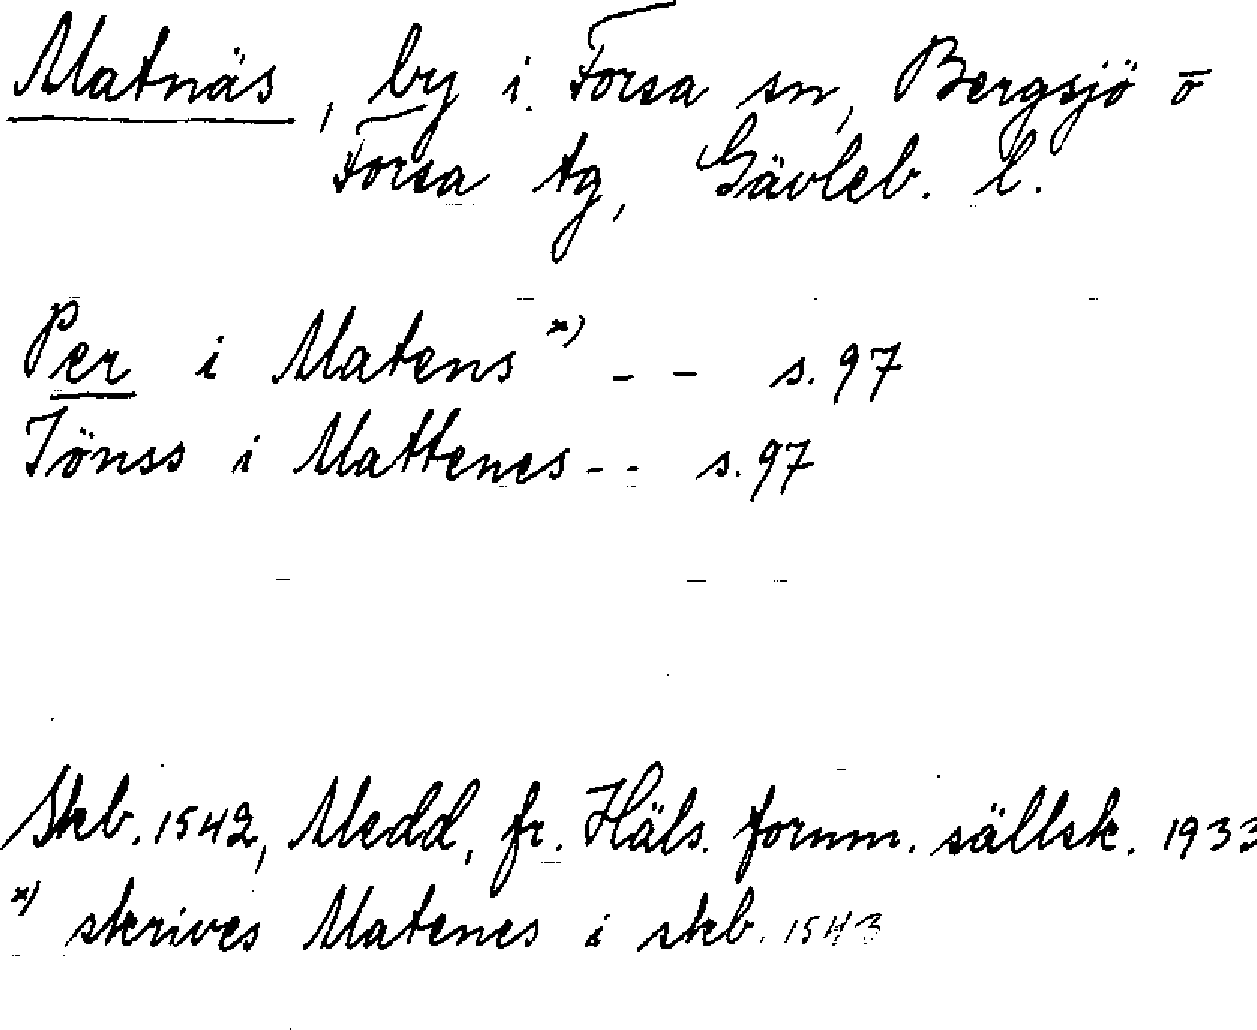 Matnäs, by i. Forsa sn, Bergsjö o
Forsa tg, Gävleb. l.
Per i Matens x) - - s. 97
Jönss i Mattenes - - s. 97
Skb. 1542, Medd. fr. Häls. fornm. sällsk. 1933
x) skrives Matenes i skb. 1543